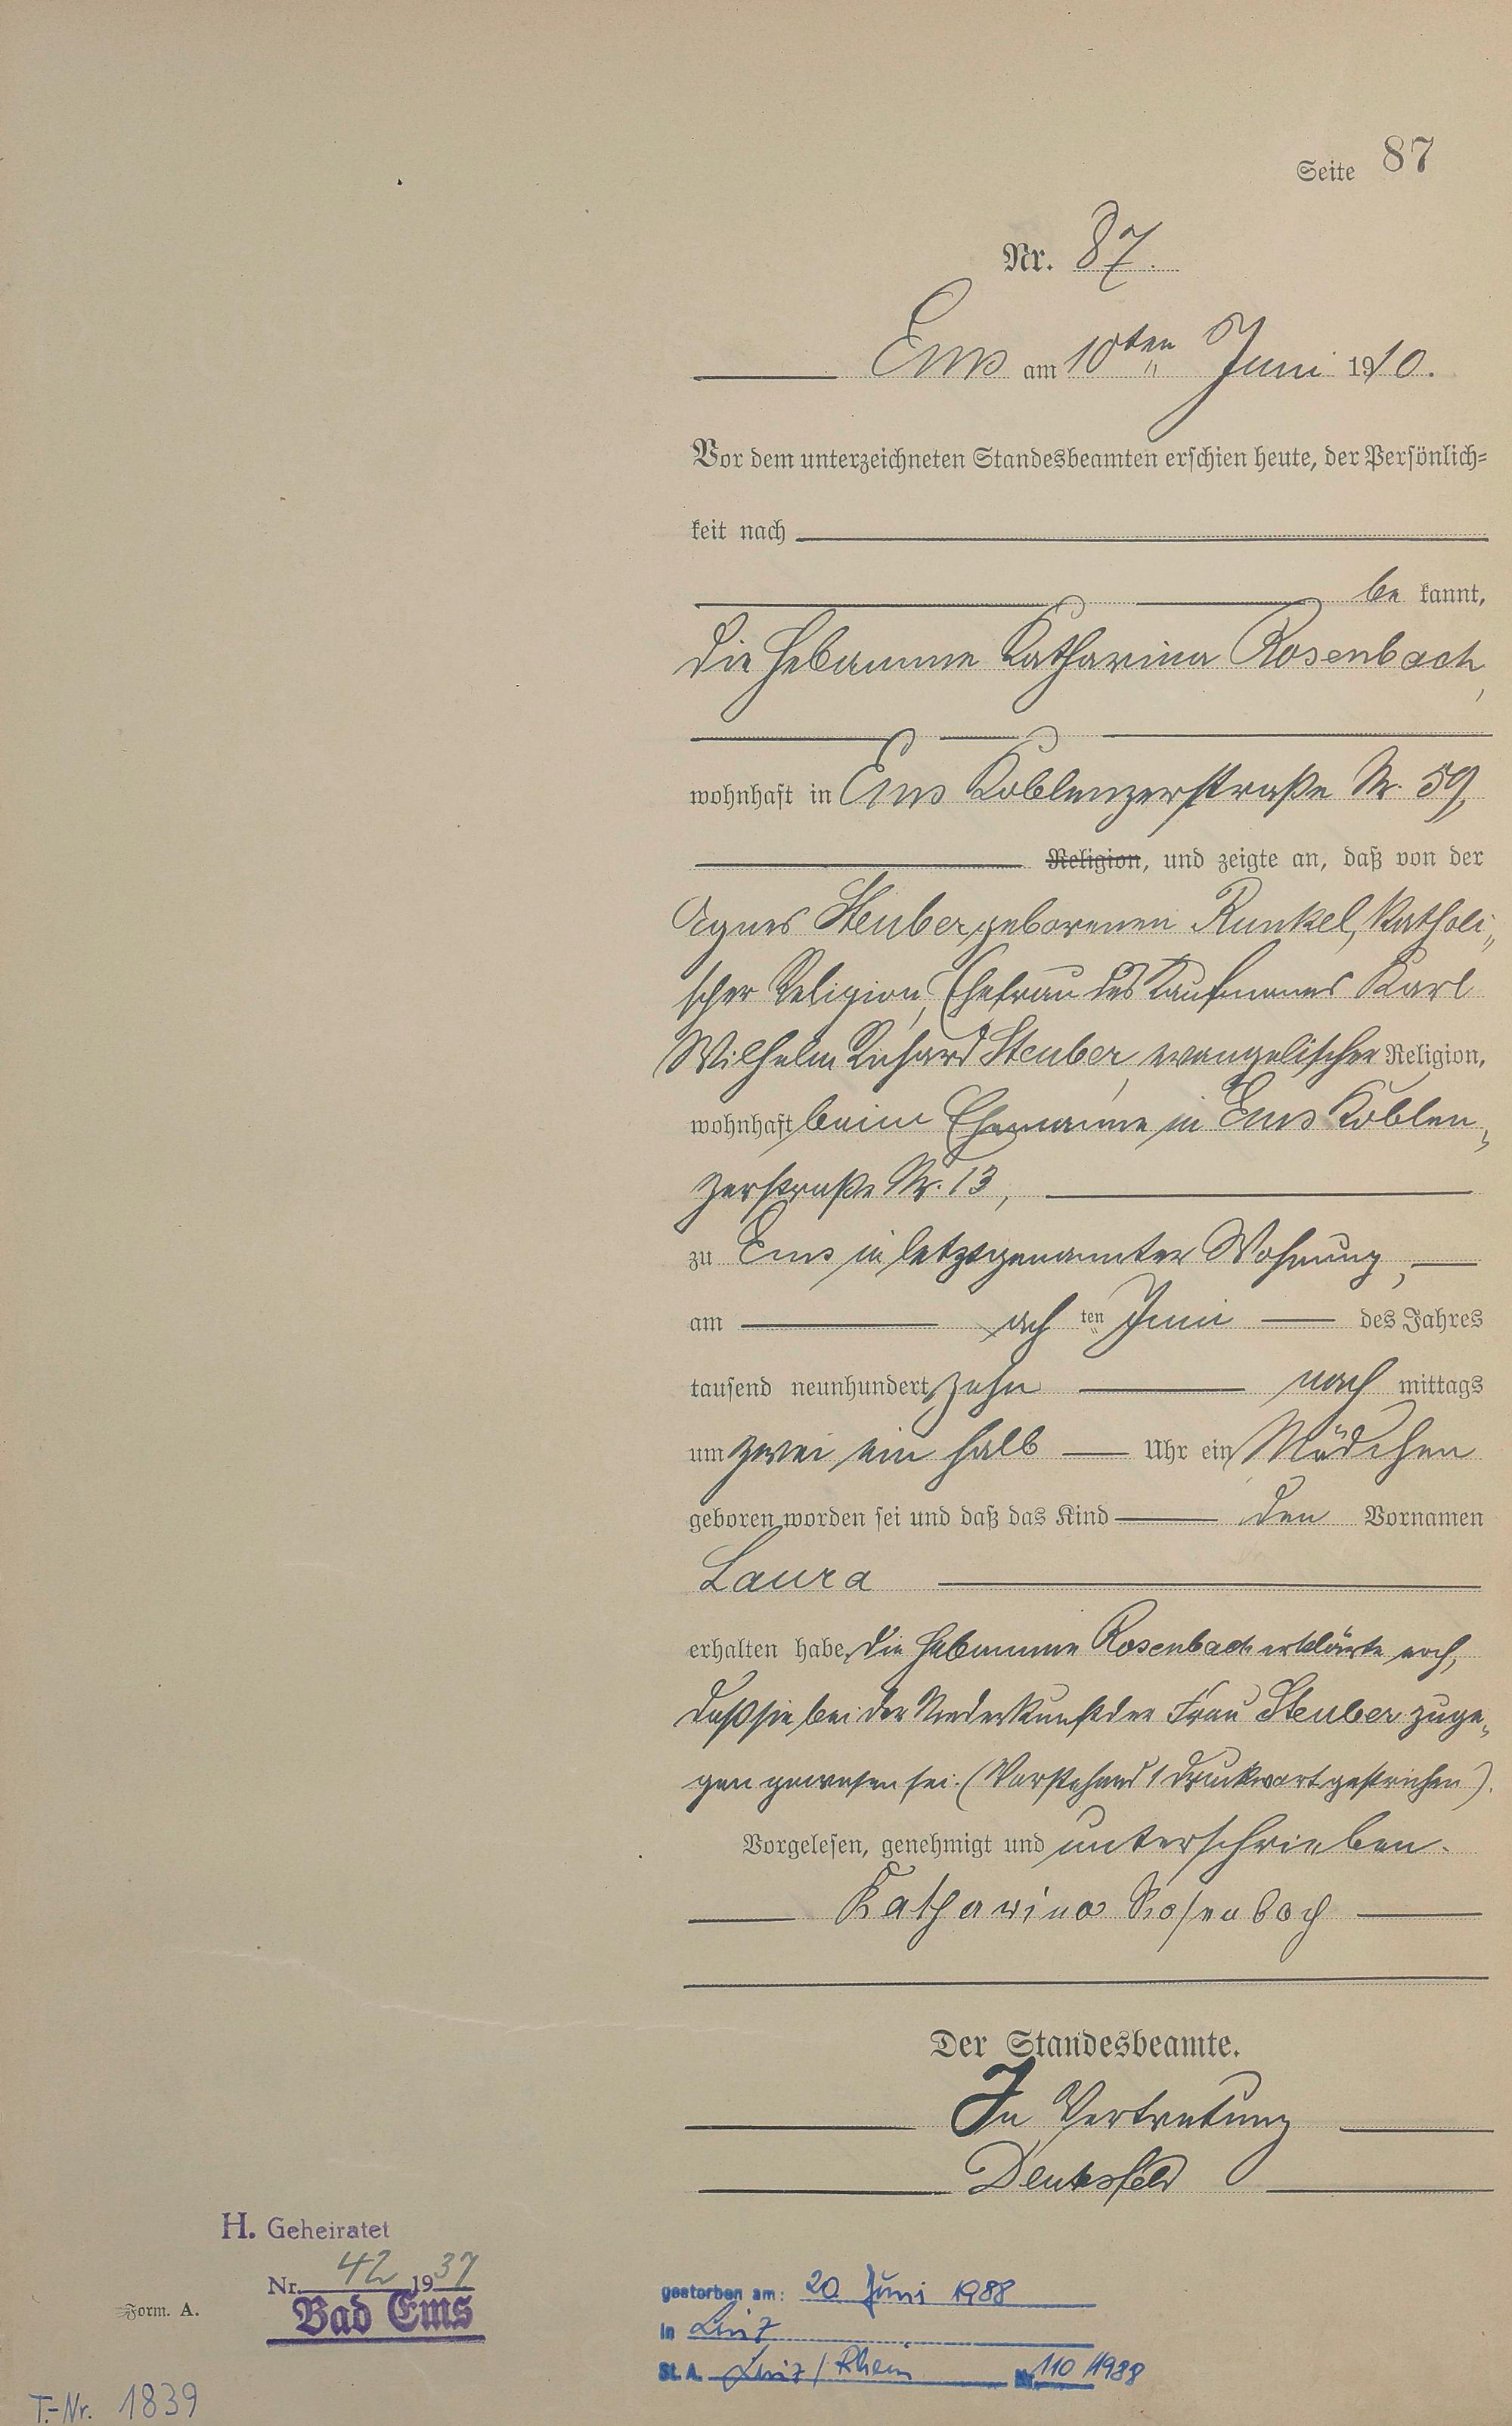 Seite 87
Nr. 87.
Ems am 10ten Juni 1910.
Vor dem unterzeichneten Standesbeamten erschien heute, der Persönlich=
keit nach
be kannt,
die Hebamme Katharina Rosenbach,
wohnhaft in Ems Koblenzerstraße Nr. 59,
Religion, und zeigte an, daß von der
Agnes Steuber geborenen Runkel, katholi„
scher Religion, Ehefrau des Kaufmannes Karl
Wilhelm Richard Steuber, evangelischer Religion,
wohnhaft beim Ehemanne in Ems Koblen„
zerstraße Nr. 13,
zu Ems in letztgenannter Wohnung,
am ach ten Juni des Jahres
tausend neunhundert zehn nach mittags
um zwei ein halb Uhr ein Mädchen
geboren worden sei und daß das Kind den Vornamen
Laura
erhalten habe. Die Hebamme Rosenbach erklärte noch,
daß sie bei der Niederkunft der Frau Steuber zuge„
gen gewesen sei. (Vorstehend 1 Druckwort gestrichen).
Vorgelesen, genehmigt und unterschrieben.
Katharina Rosenbach
Der Standesbeamte.
In Vertretung
H. Geheiratet
Nr. 42 1937
Bad Ems
Form. A.
gestorben am: 20 Juni 1988
in Linz
St. A. Linz / Rhein Nr. 110 /1988
T.-Nr. 1839